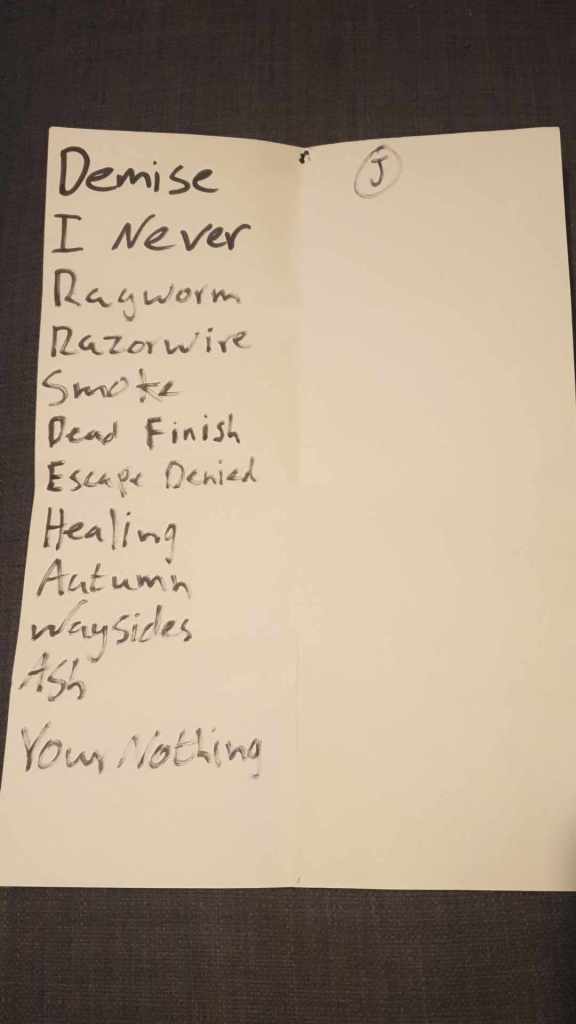 Demise
I Never
Ragworm
Razorwire
Smoke
Dead Finish
Escape Denied
Healing
Autumn
Waysides
Ash
Your Nothing
J